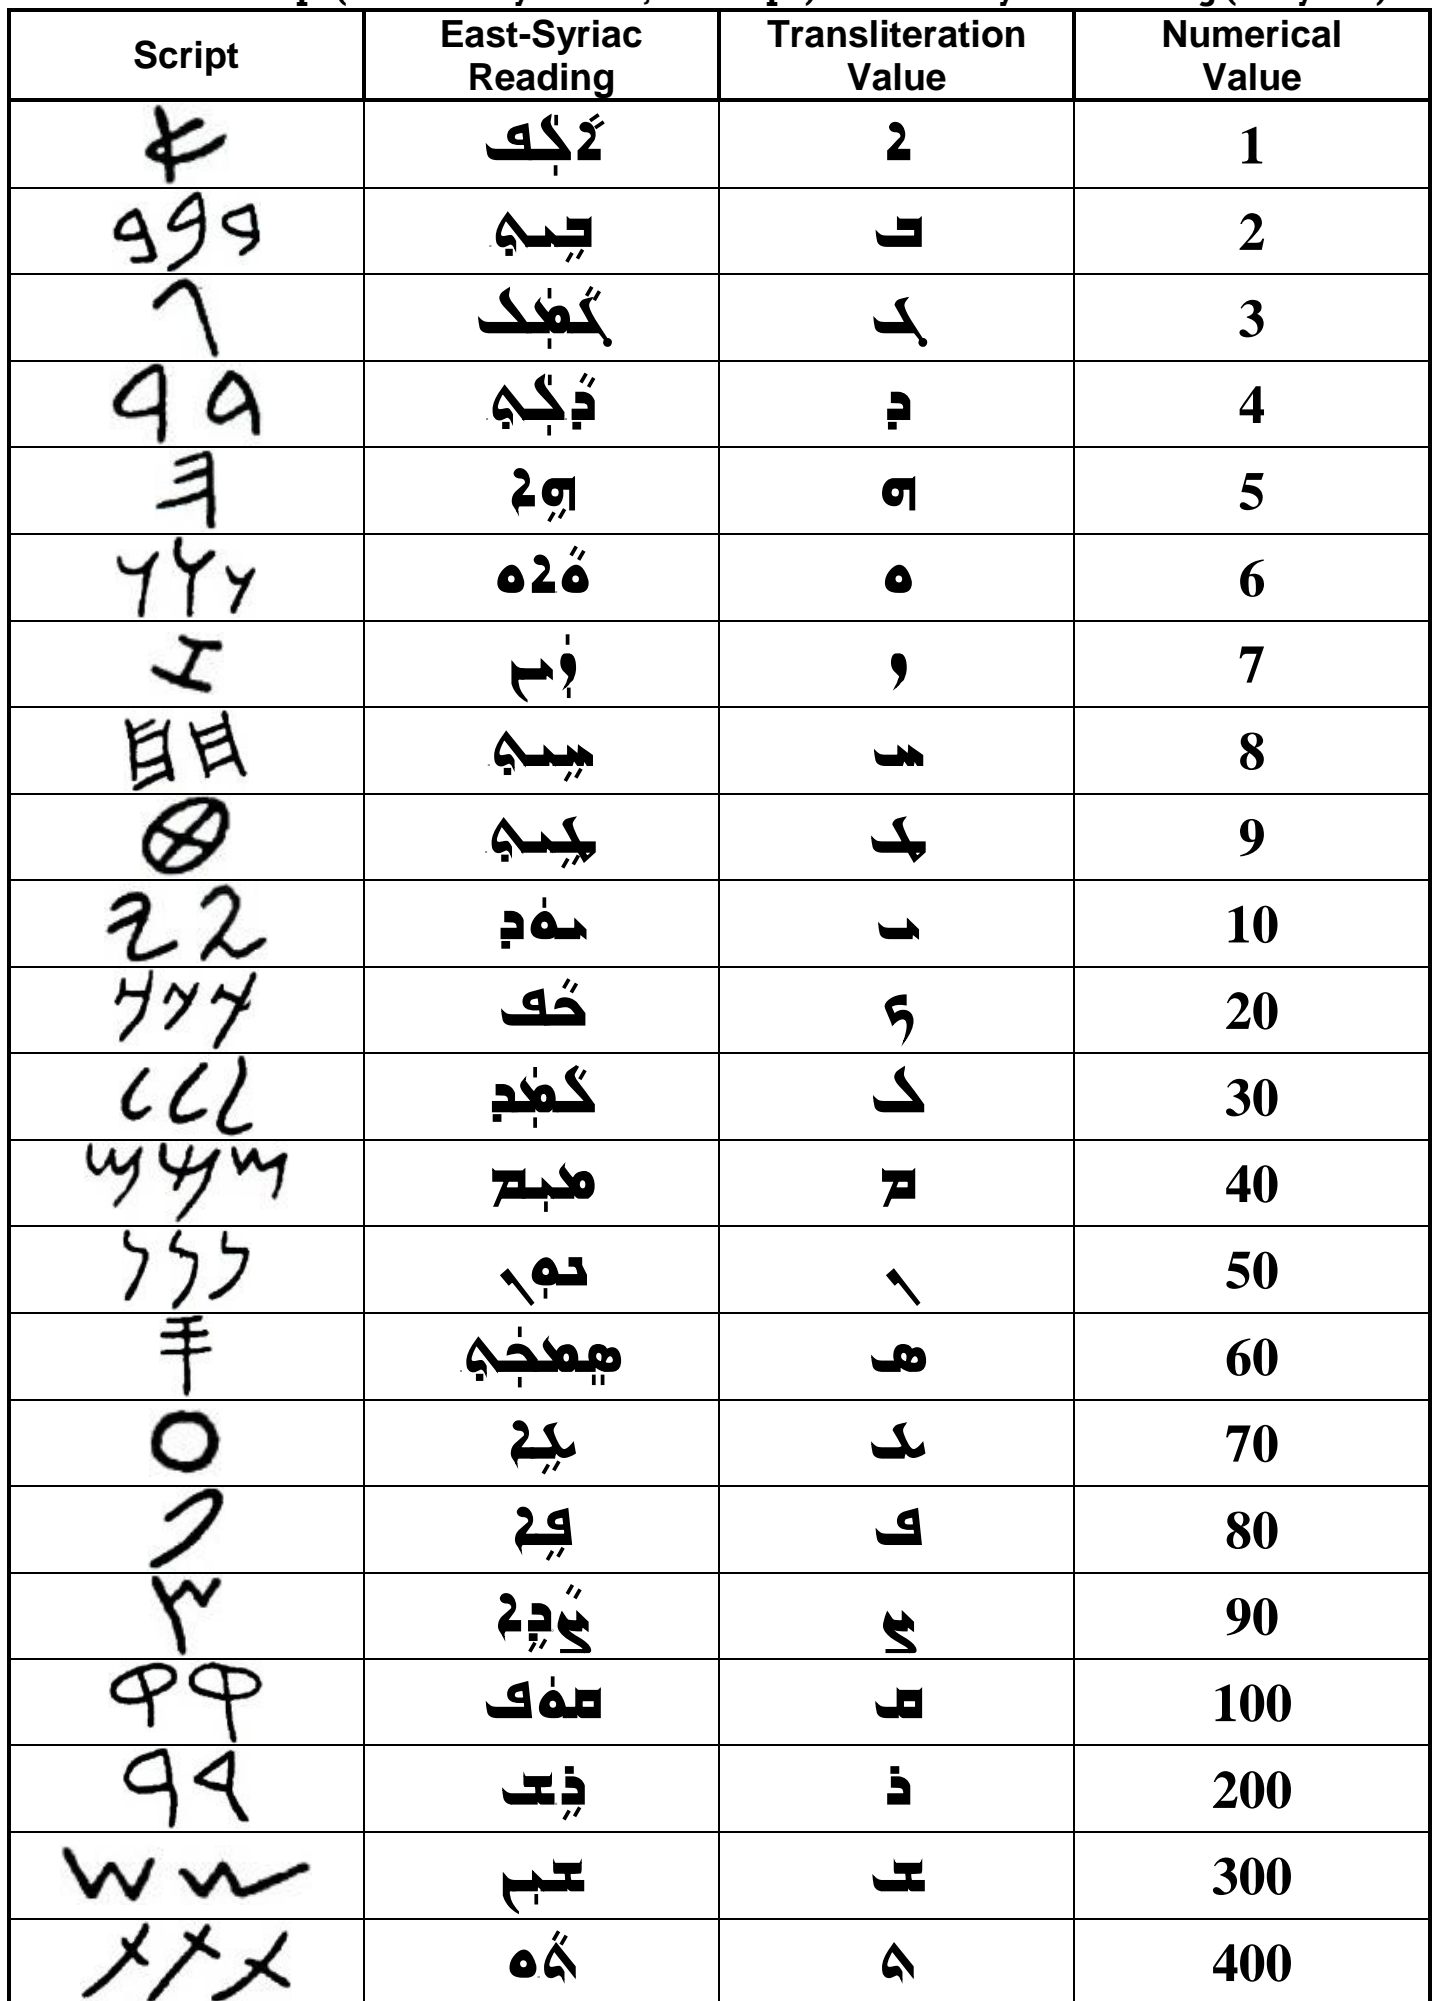 Script East-Syriac Reading Transliteration Value Numerical Value
𐤀 ܐܵܠܲܦ ܐ 1
𐤁 𐤁 𐤁 ܒܹܝܬ݂ ܒ 2
𐤂 ܓܵܡܲܠ ܓ 3
𐤃 𐤃 ܕܵܠܲܬ݂ ܕ 4
𐤄 ܗܹܐ ܗ 5
𐤅 𐤅 𐤅 ܘܵܐܘ ܘ 6
𐤆 ܙܲܝܢ ܙ 7
𐤇 𐤇 ܚܹܝܬ݂ ܚ 8
𐤈 ܛܹܝܬ݂ ܛ 9
𐤉 𐤉 ܝܘܿܕ ܝ 10
𐤊 𐤊 𐤊 ܟܵܦ ܟ 20
𐤋 𐤋 𐤋 ܠܵܡܲܕ ܠ 30
𐤌 𐤌 𐤌 ܡܝܼܡ ܡ 40
𐤍 𐤍 𐤍 ܢܘܼܢ ܢ 50
𐤎 ܣܸܡܟܲܬ݂ ܣ 60
𐤏 ܥܹܐ ܥ 70
𐤐 ܦܹܐ ܦ 80
𐤑 ܨܵܕܹܐ ܨ 90
𐤒 𐤒 ܩܘܿܦ ܩ 100
𐤓 𐤓 ܪܹܫ ܪ 200
𐤔 𐤔 ܫܝܼܢ ܫ 300
𐤕 𐤕 𐤕 ܬܵܘ ܬ 400